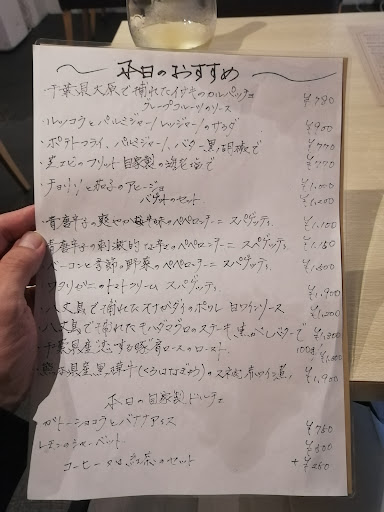 本日のおすすめ
・千葉県大原で捕れたイサキのカルパッチョ
グレープフルーツのソース ¥780
・ルッコラとパルミジャーノレッジャーノのサラダ ¥900
・ポテトフライ、パルミジャーノ、バター、黒胡椒で ¥770
・芝エビのフリット 自家製の海老塩で ¥770
・チョリソと茄子のアヒージョ ¥1,000
バゲットのセット ¥1,200
・青唐辛子の爽やかなペペロンチーニ スパゲッティ ¥1,100
・青唐辛子の刺激的な辛さペペロンチーニ スパゲッティ ¥1,150
・ベーコンと季節の野菜のペペロンチーニ スパゲッティ ¥1,300
・ワタリガニのトマトクリーム スパゲッティ ¥1,900
・八丈島で捕れたオナガダイのポワレ 白ワインソース ¥1,200
・八丈島で捕れたキハダマグロのステーキ 焦がしバターで ¥1,300
・千葉県産 恋する豚 肩ロースのロースト 100g
・熊本県産黒樺牛(くろはなぎゅう)のスネ肉 赤ワイン煮 ¥1,900
本日の自家製ドルチェ
ガトーショコラとバナナアイス ¥750
レモンのシャーベット ¥500
コーヒー or 紅茶のセット +¥250